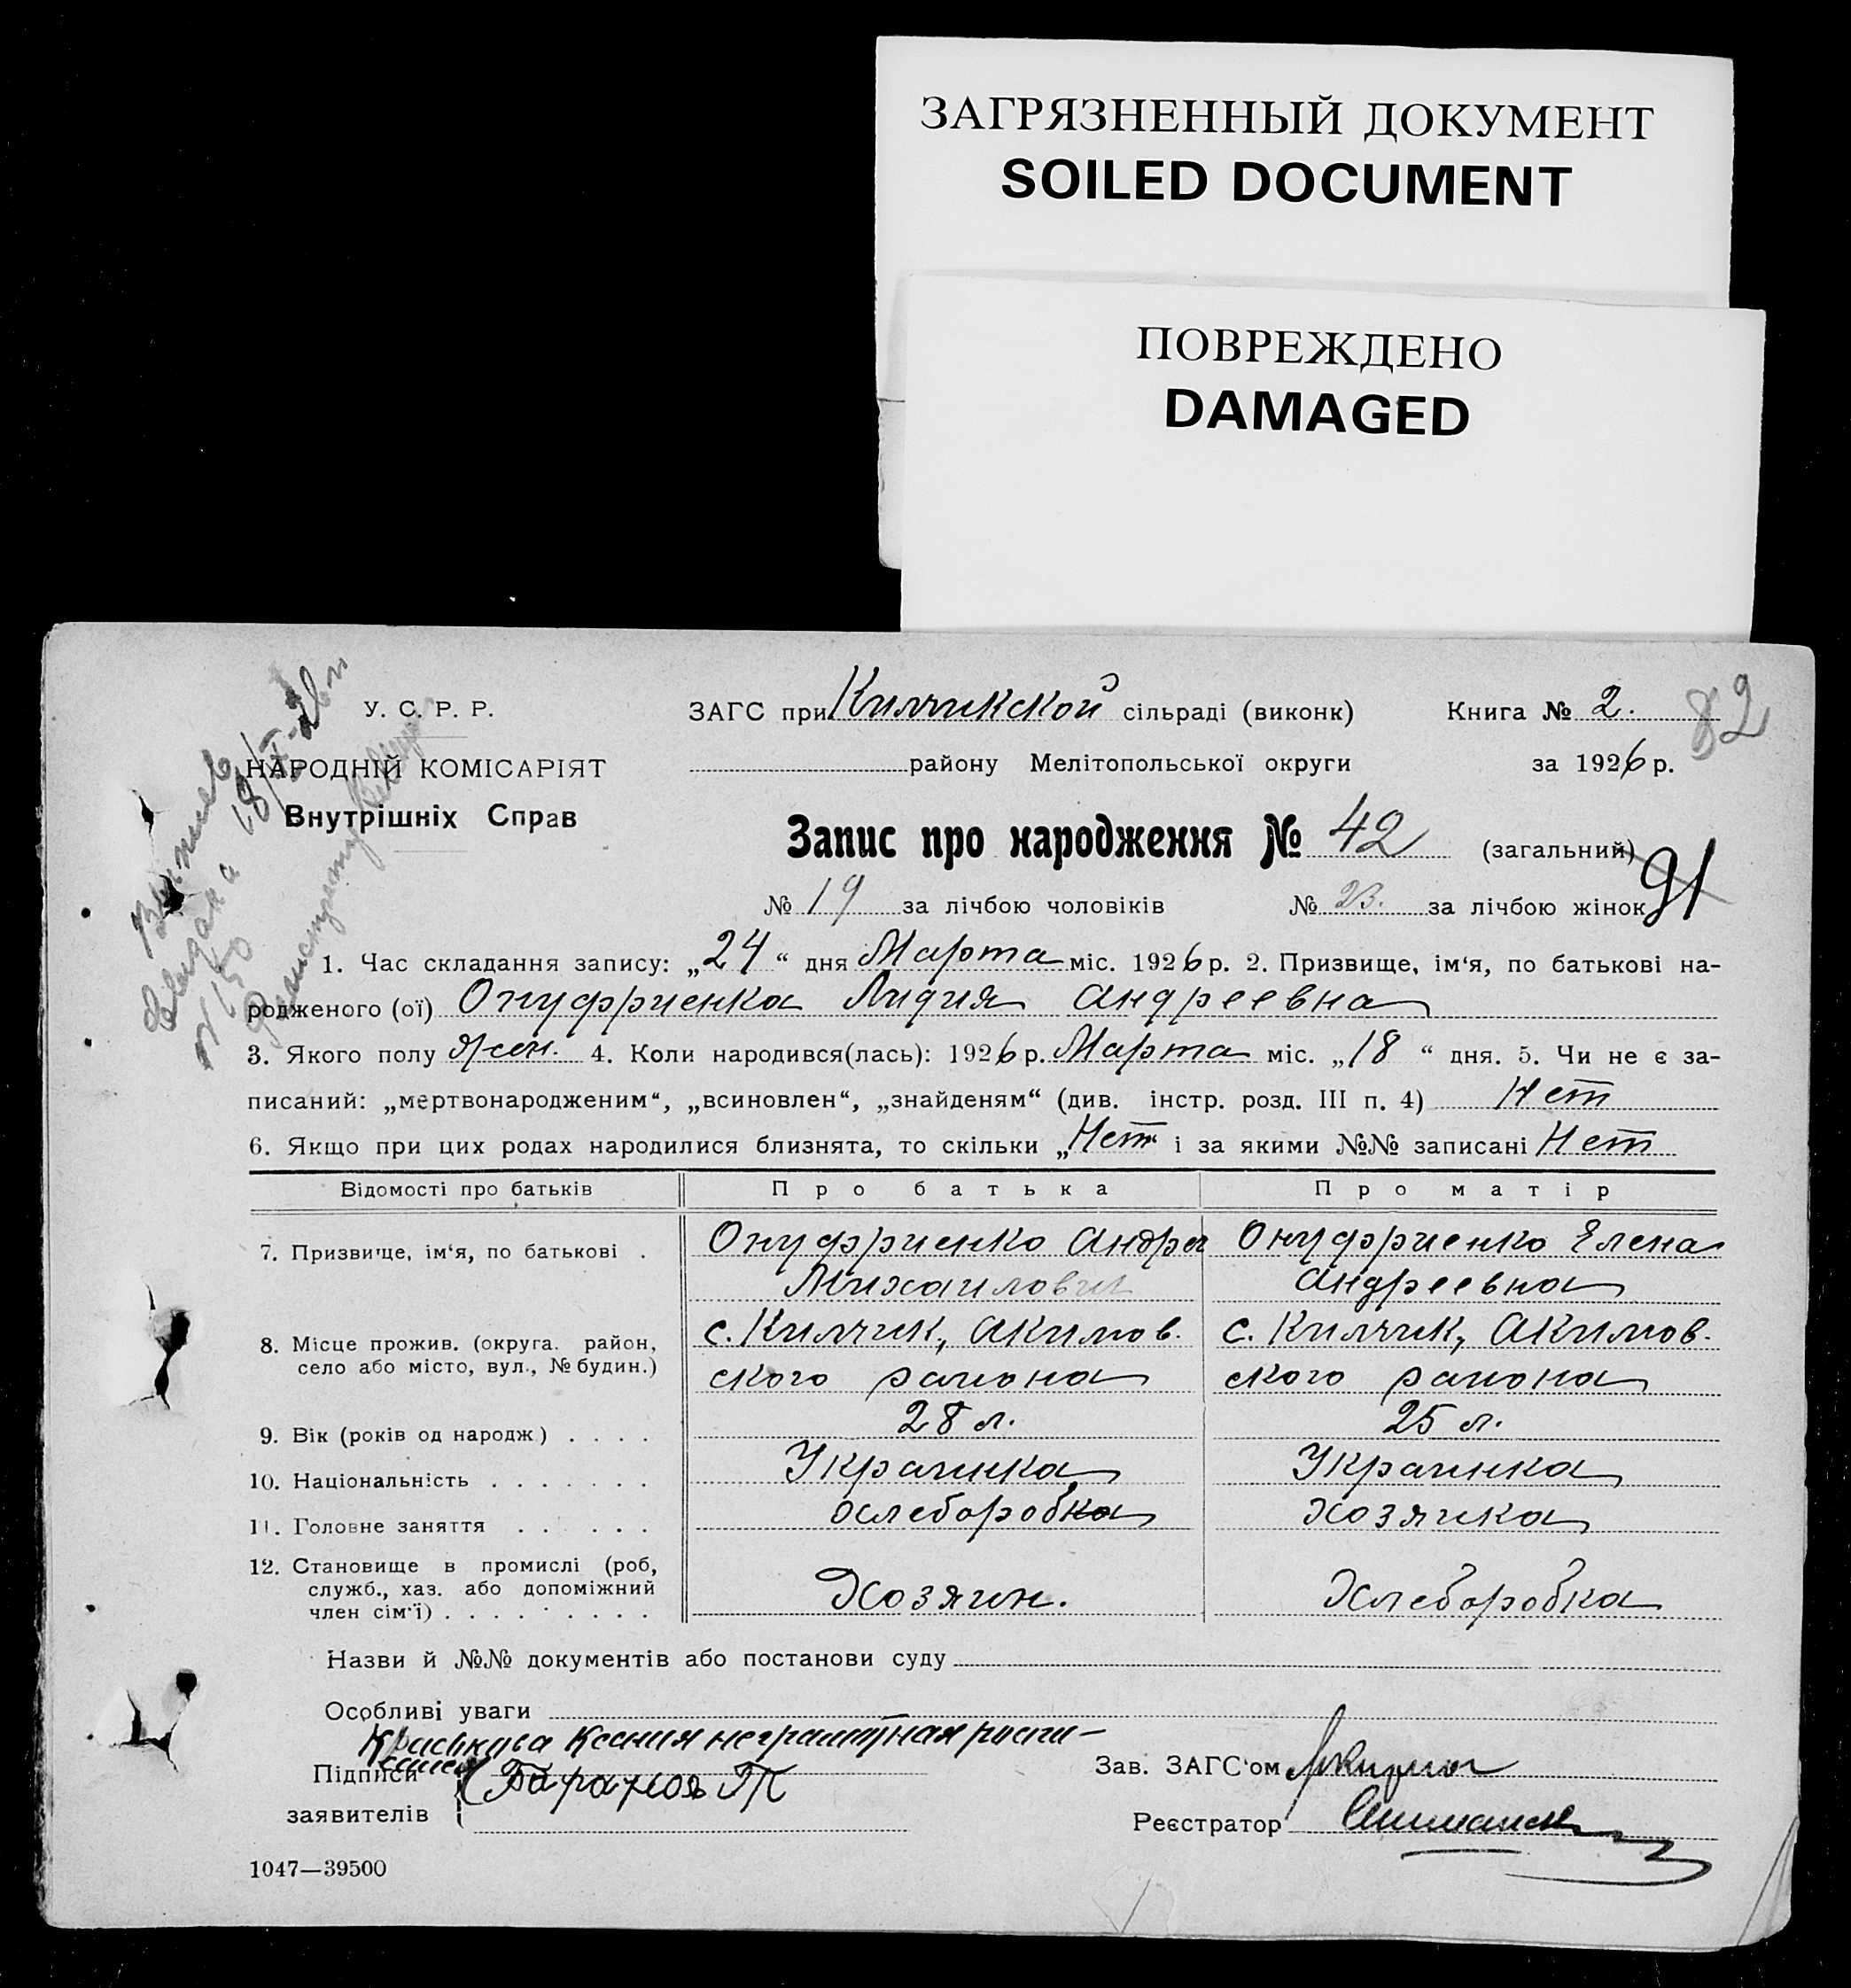 ЗАГРЯЗНЕННЫЙ ДОКУМЕНТ
SOILED DOCUMENT
ПОВРЕЖДЕНО
DAMAGED
У. С. Р. Р.
НАРОДНІЙ КОМІСАРІЯТ
Внутрішніх Справ
ЗАГС при Килчикской сільраді (виконк) Книга № 2. 82
району Мелітопольської округи за 1926 р.
Запис про народження № 42 (загальний) 91
№ 19 за лічбою чоловіків № 23. за лічбою жінок
1. Час складання запису: „24“ дня Марта міс. 1926 р. 2. Призвище, ім‘я, по батькові на-
родженого (ої) Онуфриенка Лидия Андреевна
3. Якого полу жен. 4. Коли народився(лась): 1926 р. Марта міс. „18“ дня. 5. Чи не є за-
писаний: „мертвонародженим“, „всиновлен“, „знайденям“ (див. інстр. розд. III п. 4) Нет
6. Якщо при цих родах народилися близнята, то скільки „Нет“ і за якими №№ записані Нет
Відомості про батьків Про батька Про матір
7. Призвище, ім‘я, по батькові . Онуфриенко Андрей Онуфриенко Елена
Михаилович Андреевна
8. Місце прожив. (округа. район, с. Килчик, Акимов. с. Килчик, Акимов.
село або місто, вул., № будин.) ского района ского района
9. Вік (років од народж) . . . . 28 л. 25 л.
10. Національність . . . . . . . Украинка Украинка
11. Головне заняття . . . . . хлеборобка Хозяйка
12. Становище в промислі (роб,
служб., хаз. або допоміжний Хозяин. Хлеборобка
член сім‘ї) . . . . . . . . .
Назви й №№ документів або постанови суду
Особливі уваги
Ксения неграмотная
Підписи Баранов
заявителів
Зав. ЗАГС‘ом
Реєстратор
1047—39500